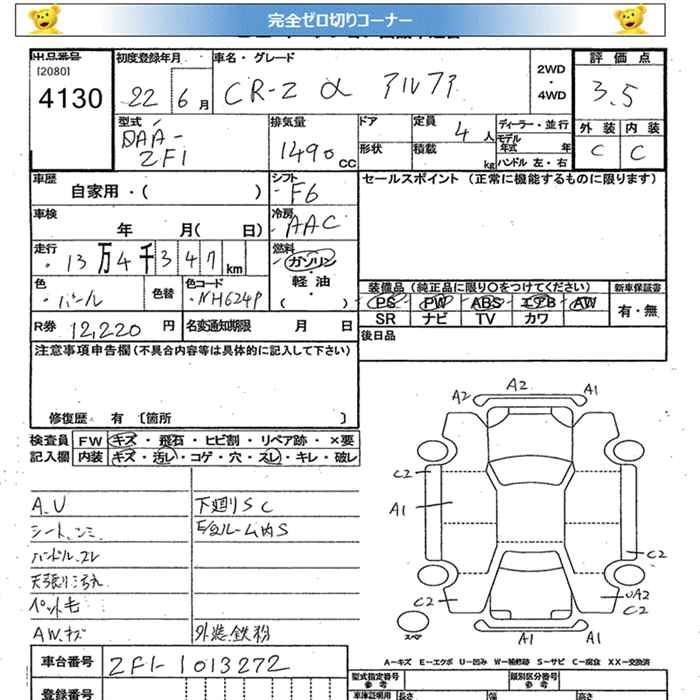 完全ゼロ切りコーナー
出品番号 初度登録年月 車名・グレード 評価点
[2080]
4130 22 6 月 CR-Z α アルファ 2WD・4WD 3.5
型式 排気量 ドア 定員 4人 ディーラー・並行 外装 内装
DAA-ZF1 1490 cc 形状 積載 kg モデル年式 年 C C
ハンドル 左・右
車歴 シフト セールスポイント (正常に機能するものに限ります)
自家用・( ) F6
車検 年 月( 日) 冷房 AAC
走行 13万4千347km 燃料 ガソリン・軽油・( )
色 パール 色替 色コード NH624P 装備品(純正品に限り○をつけてください) 新車保証書
PS PW ABS エアB AW 有・無
SR ナビ TV カワ
R券 12,220 円 名変通知期限 月 日 後日品
注意事項申告欄(不具合内容等は具体的に記入して下さい)
修復歴 有 〔箇所 〕
検査員 FW キズ・飛石・ヒビ割・リペア跡・×要
記入欄 内装 キズ・汚レ・コゲ・穴・スレ・キレ・破レ
A.U 下廻りSC
シート、シミ
ハンドル.スレ
ペット毛
AW.キズ 外装鉄粉
車台番号 ZF1-1013272
登録番号
A2 A2 A1
C2
A1
C2
C2 UA2
C2
スペア A1 A1
A-キズ E-エクボ U-凹み W-補修跡 S-サビ C-腐食 XX-交換済
型式指定番号 参考 類別区分番号 参考
車庫証明用 長さ 幅 高さ